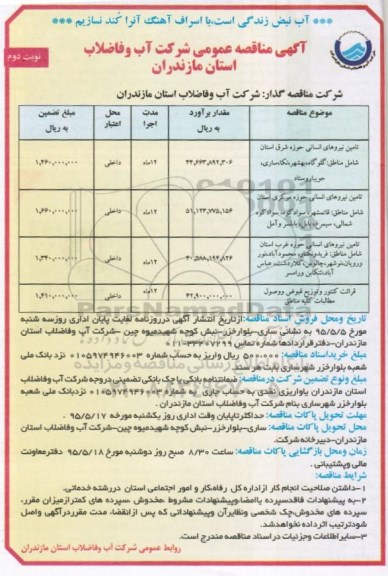 *** آب نبض زندگی است،با اسراف آهنگ آنرا کند نسازیم ***
آگهی مناقصه عمومی شرکت آب وفاضلاب
استان مازندران
نوبت دوم
شرکت مناقصه گذار: شرکت آب وفاضلاب استان مازندران
موضوع مناقصه
مقدار برآورد به ریال
مدت اجرا
محل اعتبار
مبلغ تضمین به ریال
تامین نیروهای انسانی حوزه شرق استان
شامل مناطق:گلوگاه،بهشهر،نکا،ساری،
جویباروستاد
۱۲ماه
داخلی
۱,۴۶۰,۰۰۰,۰۰۰
تامین نیروهای انسانی حوزه مرکزی استان
۵۱,۱۲۳,۷۷۵,۱۵۶
۱۲ماه
داخلی
۱,۶۶۰,۰۰۰,۰۰۰
تامین نیروهای انسانی حوزه غرب استان
شامل مناطق: فریدونکنار، محمودآباد،نور
ورویان،نوشهر،چالوس،کلاردشت،عباس
آباد،تنکابن ورامسر
۱۲ماه
داخلی
۱,۳۴۰,۰۰۰,۰۰۰
قرائت کنتور وتوزیع قبوض ووصول
مطالبات کلیه مناطق
۴۲,۹۰۰,۰۰۰,۰۰۰
۱۲ماه
داخلی
۱,۴۱۰,۰۰۰,۰۰۰
تاریخ ومحل فروش اسناد مناقصه:ازتاریخ انتشار آگهی درروزنامه لغایت پایان اداری روزسه شنبه
مورخ ۹۵/۵/۵ به نشانی ساری–بلوارخزر–نبش کوچه شهیدمیوه چین –شرکت آب وفاضلاب استان
مازندران–دفترقراردادها شماره تماس ۳۳۲۰۷۲۹۹-۰۱۱
مبلغ خریداسناد مناقصه: ۵۰۰۰۰۰ ریال واریز به حساب شماره ۰۱۰۵۹۷۴۹۴۶۰۰۳ نزد بانک ملی
شعبه بلوارخزر شهرساری بابت هر سند
مبلغ ونوع تضمین شرکت درمناقصه: ضمانتنامه بانکی یا چک بانکی تضمینی دروجه شرکت آب وفاضلاب
استان مازندران یاواریزی نقدی به حساب جاری به شماره ۰۱۰۵۹۷۴۹۴۶۰۰۳ نزدبانک ملی شعبه
بلوارخزر شهرساری بنام شرکت آب وفاضلاب استان مازندران .
مهلت تحویل پاکات مناقصه: حداکثرتاپایان وقت اداری روز یکشنبه مورخه ۹۵/۵/۱۷ .
محل تحویل پاکات مناقصه: ساری–بلوارخزر–نبش کوچه شهیدمیوه چین–شرکت آب وفاضلاب استان
مازندران–دبیرخانه شرکت.
زمان ومحل بازگشایی پاکات مناقصه: ساعت ۸/۳۰ صبح روز دوشنبه مورخ ۹۵/۵/۱۸ دفترمعاونت
مالی وپشتیبانی .
شرایط مناقصه:
۱–داشتن صلاحیت انجام کار ازاداره کل رفاه،کار و امور اجتماعی استان دررشته خدماتی.
۲–به پیشنهادات فاقدسپرده یاامضا،وپیشنهادات مشروط ،مخدوش ،سپرده های کمترازمیزان مقرر،
سپرده های مخدوش،چک شخصی ونظایرآن وپیشنهاداتی که پس ازانقضاء مدت مقرردرآگهی واصل
شودترتیب اثرداده نخواهدشد.
۳–سایراطلاعات وجزئیات در اسناد مناقصه مندرج است.
روابط عمومی شرکت آب وفاضلاب استان مازندران